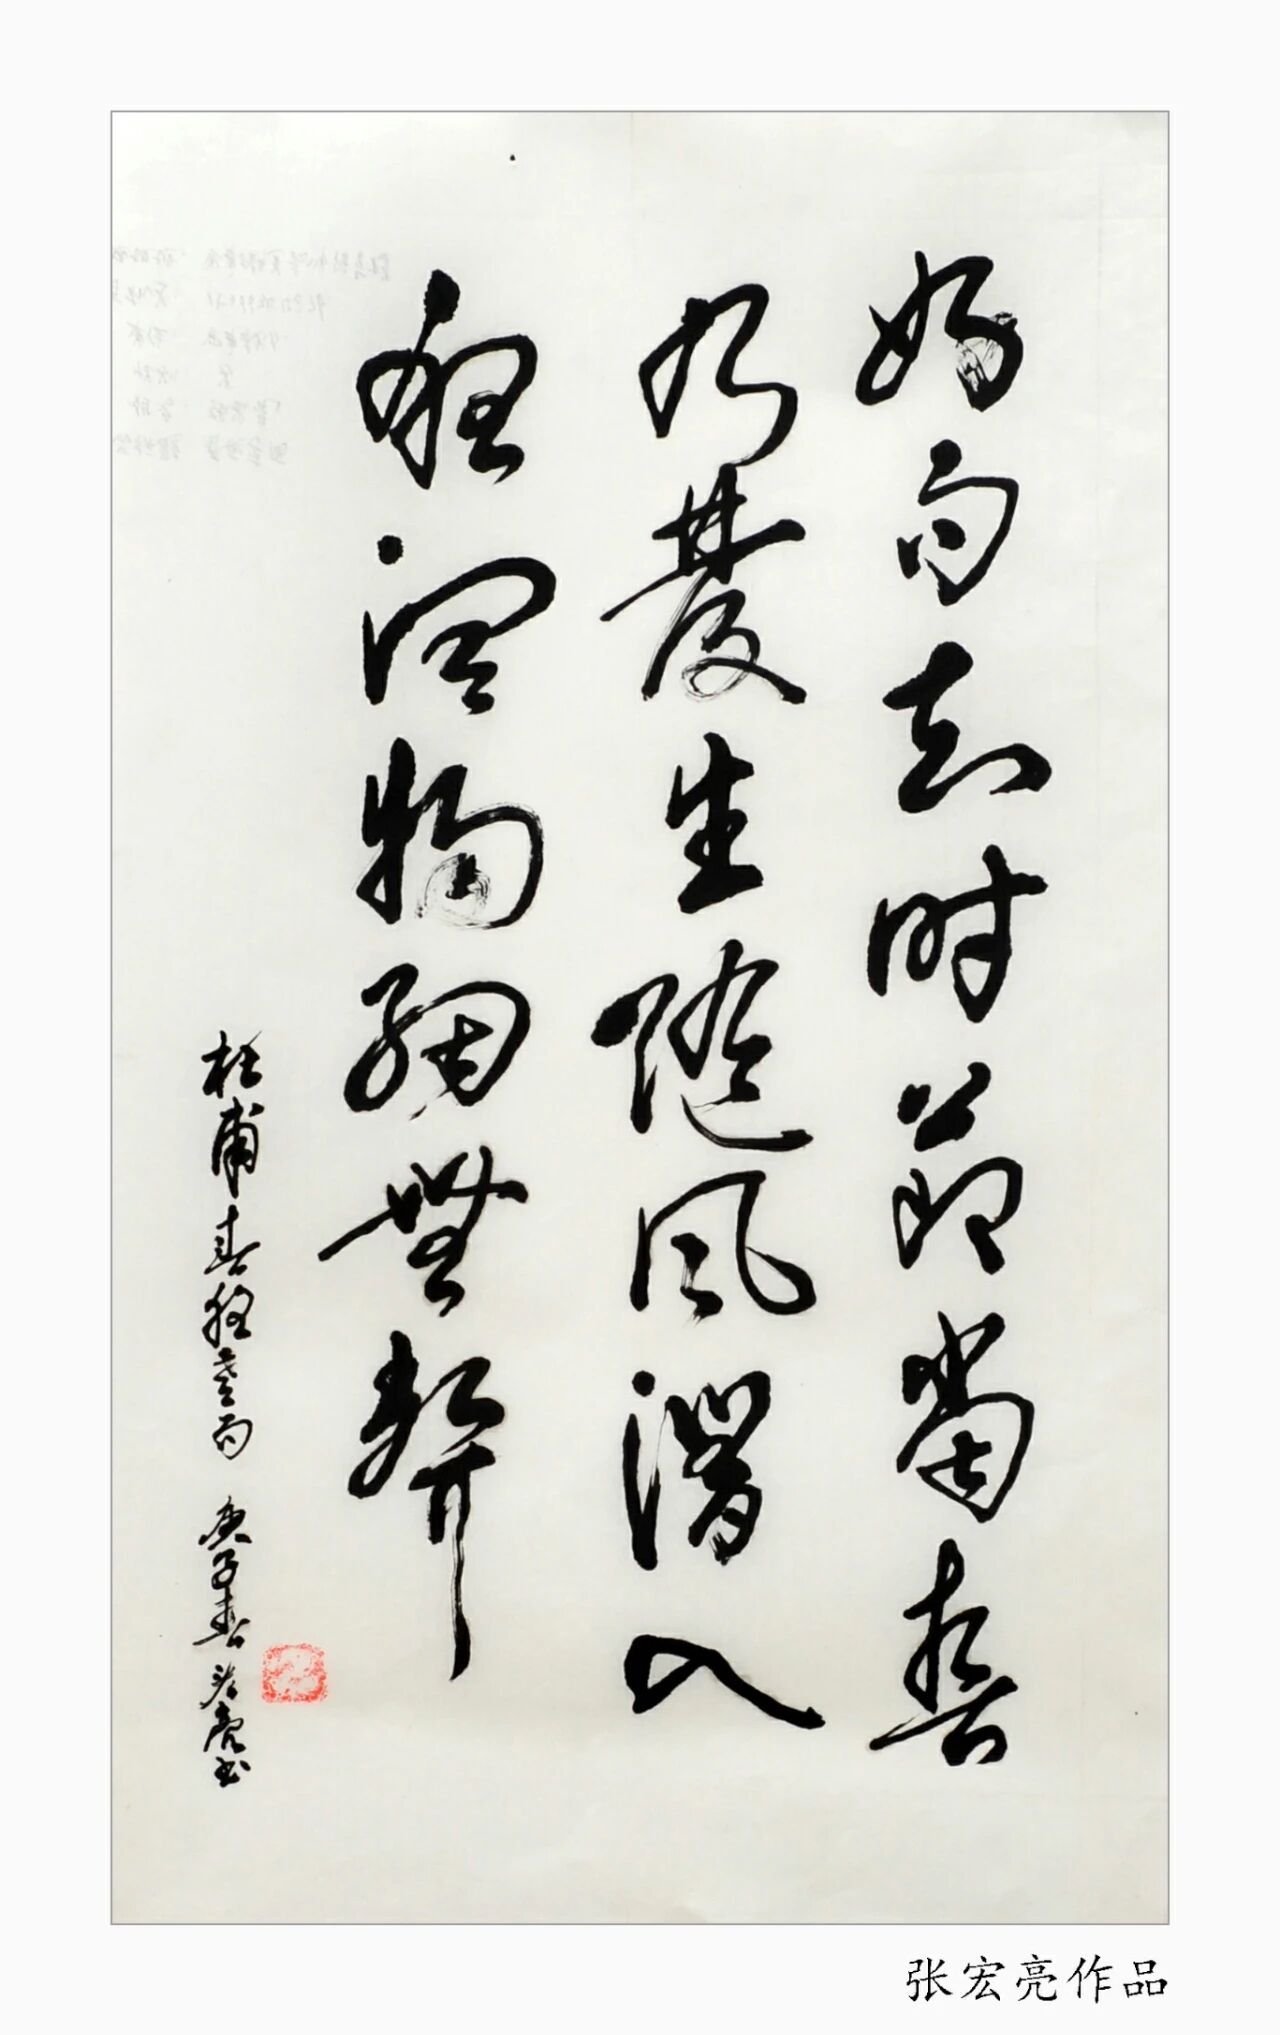 好雨知时节当春
乃發生随风潛入
夜润物细無聲
杜甫春夜喜雨 庚子春 宏亮书
张宏亮作品